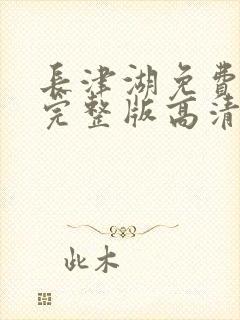 長津湖免費
完整版高清
此木